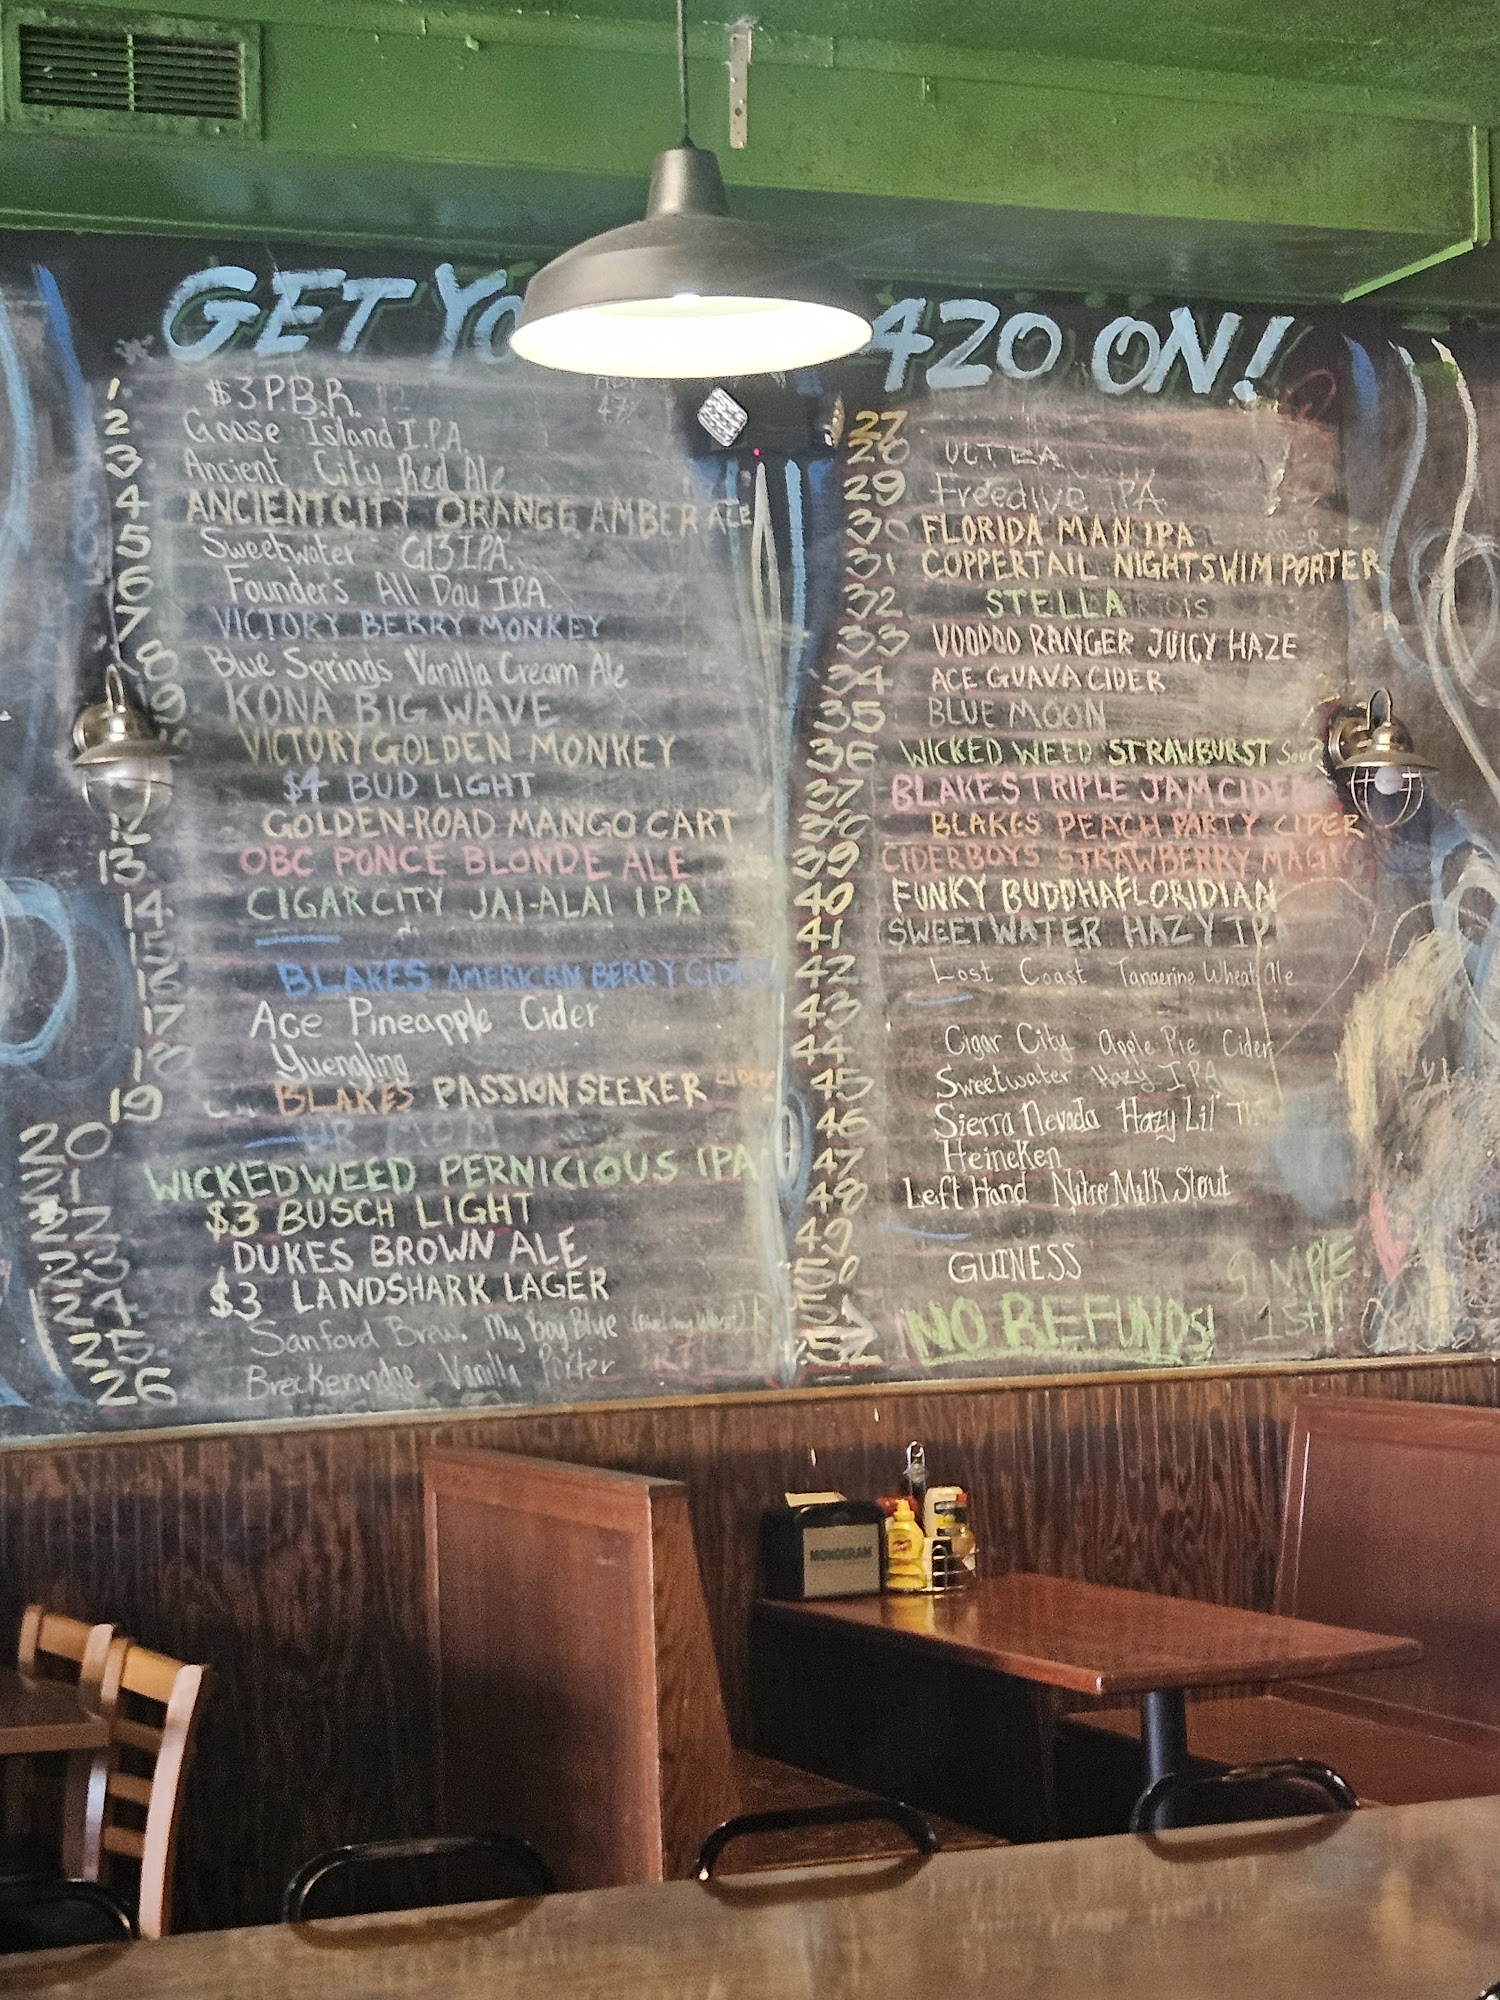 GET YO 420 ON!
1 $3 P.B.R.
2 Goose Island I.P.A.
3 Ancient City Red Ale
4 ANCIENT CITY ORANGE AMBER ALE
5 Sweetwater G13 IPA
6 Founder's All Day I.P.A.
7 VICTORY BERRY MONKEY
8 Blue Springs Vanilla Cream Ale
9 KONA BIG WAVE
VICTORY GOLDEN MONKEY
$4 BUD LIGHT
12 GOLDEN-ROAD MANGO CART
13 OBC PONCE BLONDE ALE
14 CIGAR CITY JAI-ALAI IPA
15
16 BLAKES AMERICAN BERRY CIDER
17 Ace Pineapple Cider
18 Yuengling
19 BLAKES PASSION SEEKER CIDER
20
21 WICKED WEED PERNICIOUS IPA
22 $3 BUSCH LIGHT
23 DUKES BROWN ALE
24 $3 LANDSHARK LAGER
25 Sanford Brew. My Boy Blue
26 Breckenridge Vanilla Porter
27
28 ULTRA
29 Freedive IPA
30 FLORIDA MAN IPA
31 COPPERTAIL NIGHT SWIM PORTER
32 STELLA
33 VOODOO RANGER JUICY HAZE
34 ACE GUAVA CIDER
35 BLUE MOON
36 WICKED WEED STRAWBURST Sour
37 BLAKES TRIPLE JAM CIDER
38 BLAKES PEACH PARTY CIDER
39 CIDERBOYS STRAWBERRY MAGIC
40 FUNKY BUDDHA FLORIDIAN
41 SWEETWATER HAZY IP
42 Lost Coast Tangerine Wheat Ale
43
44 Cigar City Apple Pie Cider
45 Sweetwater Hazy IPA
46 Sierra Nevada Hazy Lil' Th
47 Heineken
48 Left Hand Nitro Milk Stout
49
50 GUINESS
51
52 NO REFUNDS!
SIMPLE
1st!!
MONOGRAM